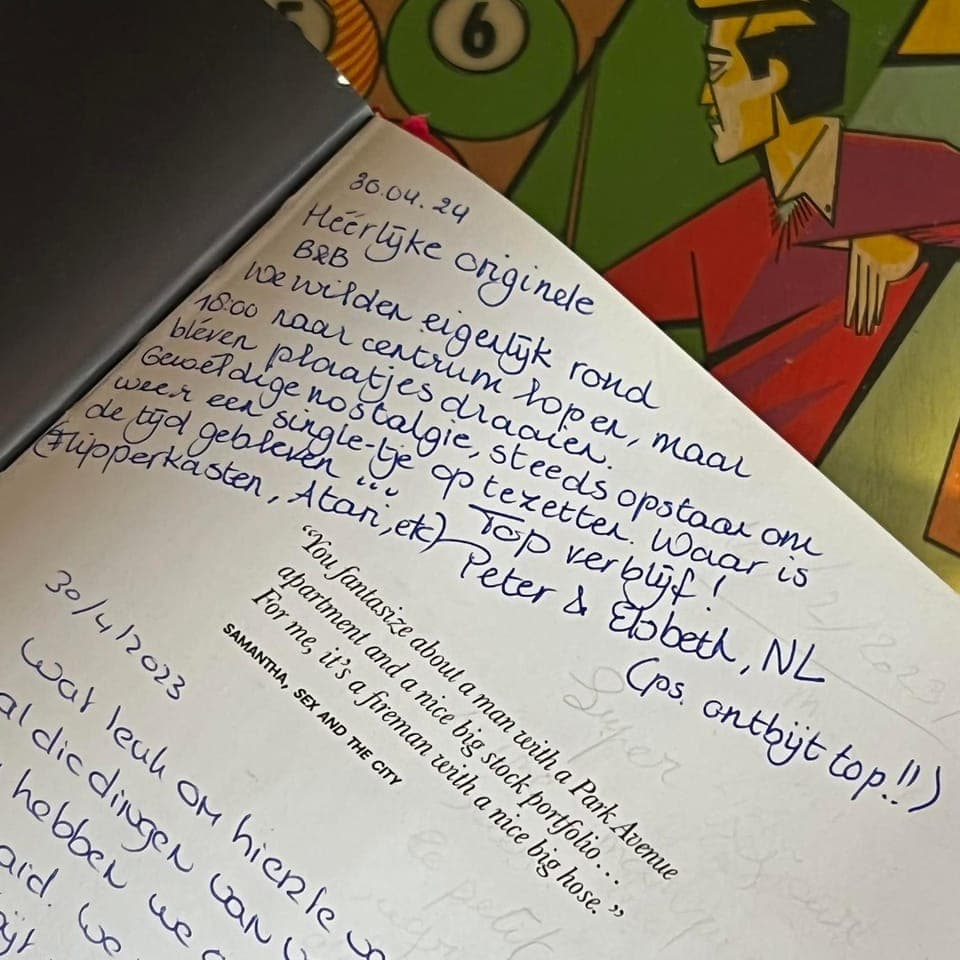 6
30.04.24
Héérlijke originele
B&B
We wilden eigenlijk rond
18:00 naar centrum lopen, maar
bléven plaatjes draaien.
Gewéldige nostalgie, steeds opstaan om
weer een single-tje op te zetten. Waar is
de tijd gebleven ... Top verblijf!
(Flipperkasten, Atari, etc) Peter & Elsbeth, NL
(ps. ontbijt top..!!)
“You fantasize about a man with a Park Avenue
apartment and a nice big stock portfolio...
For me, it's a fireman with a nice big hose.”
SAMANTHA, SEX AND THE CITY
30/4/2023
Wat leuk om hier
al die dingen van
hebben we
We
Super